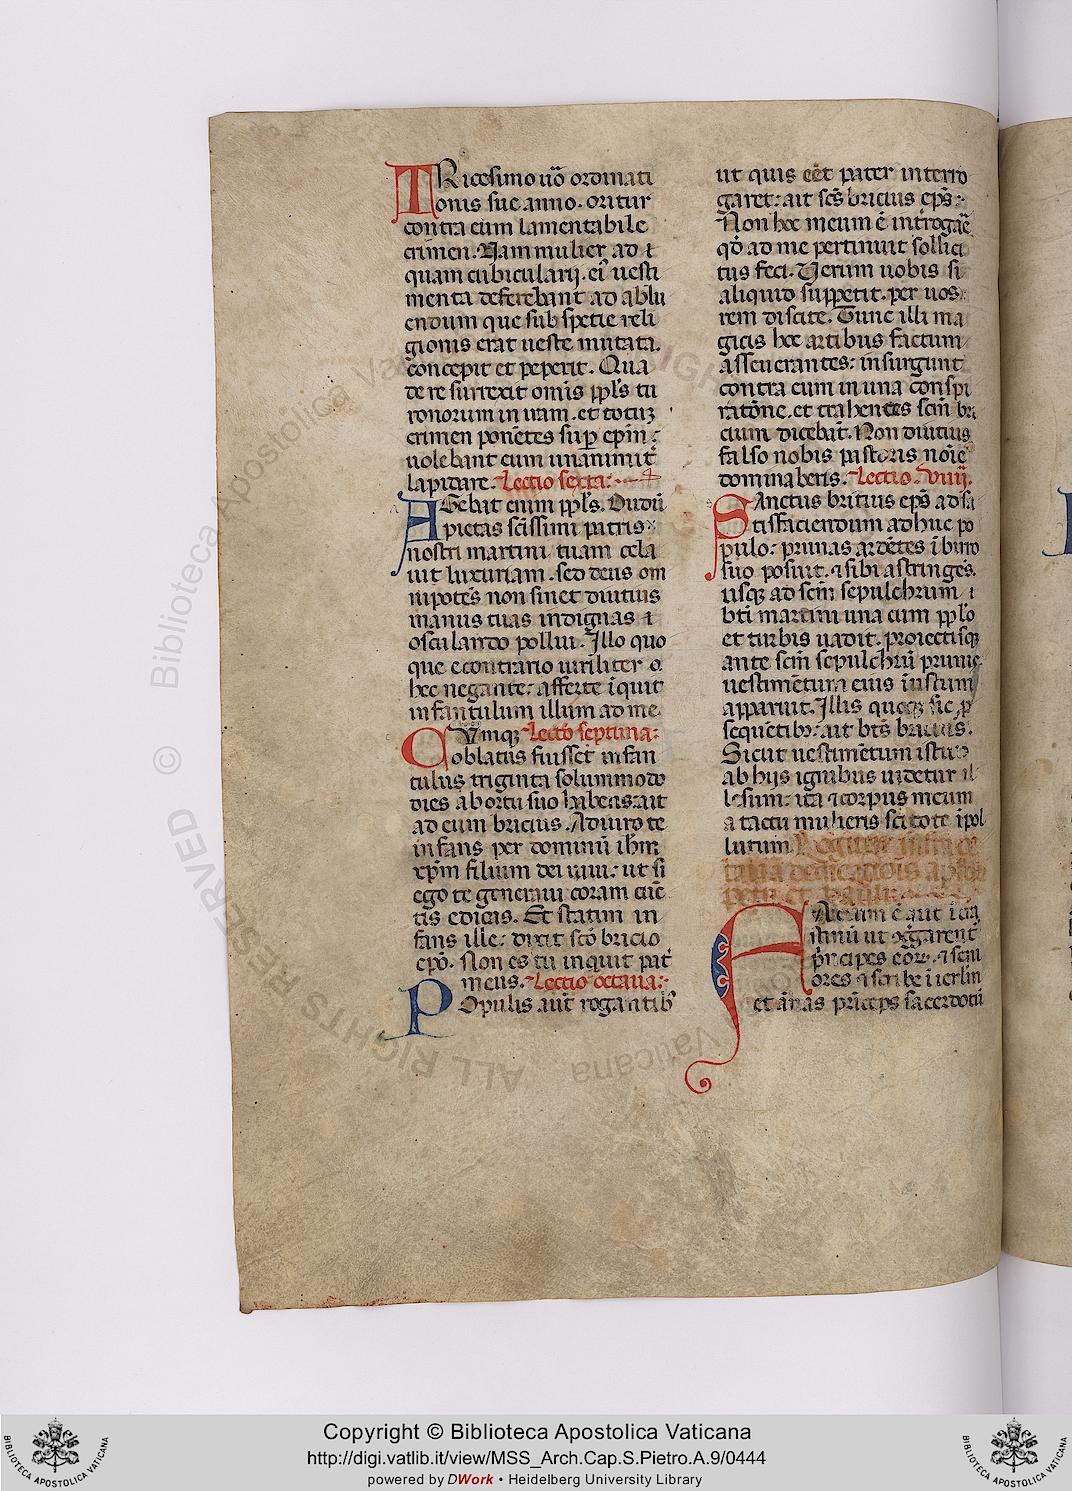 TRicesimo uo᷑ ordinati
onis sue anno. oritur
contra eum lamentabile
crimen. Nam mulier ad ⁊
quam cubicularij. ei᷒ uesti
menta deferebant ad ablu
endum que sub spetie reli
gionis erat ueste mutata.
concepit et peperit. Qua
de re surrexit om̅is ppl̅s tu
ronorum in iram. et totuꝫ
crimen pone̅tes sup̅ ep̅m :
uolebant eum unanimit᷑
lapidare. Lectio sexta:
AGebat enim ppl̅s. Dudu̅
pietas sc̅issimi patris
nostri martini tuam cela
uit luxuriam. sed deus om
nipote̅s non sinet diutius
manus tuas indignas ⁊
osculando pollui. Illo quo
que econtrario uiriliter
hec negante: afferte i̅quit
infantulum illum ad me.
CUmqꝫ Lectio septima:
oblatus fuisset infan
tulus triginta solummodo
dies ab ortu suo habens: ait
ad eum bricius. Adiuro te
infans per dominu̅ ih̅m
xp̅m filium dei uiui: ut si
ego te generaui coram cu̅c
tis edicis. Et statim in
fans ille: dixit sc̅o bricio
ep̅o. Non es tu inquit pat᷑
meus. Lectio octaua:
POpulis aut̅ rogantib᷒
ut quis e̅et pater interro
garet: ait sc̅s bricius ep̅s:
Non hoc meum e̅ int᷑rogar̅e
qd̅ ad me pertinuit sollici
tus feci. Uerum uobis si
aliquid suppetit. per uos
rem discite. Tunc illi ma
gicis hec artibus factum
asseuerantes: insurgunt
contra eum in una conspi
ratio̅ne. et trahentes sc̅m bri
cium dicebat̅. Non diutius
falso nobis pastoris no̅ie
dominaberis. Lectio. viiij.
SAnctus britius ep̅s ad sa
tisfaciendum adhuc po
pulo: prunas arde̅tes i̅ birro
suo posuit. ⁊ sibi astringe̅s.
usqꝫ ad sc̅m sepulchrum
bt̅i martini una cum pp̅lo
et turbis uadit. proiectisqꝫ
ante sc̅m sepulchru̅ prunis
uestime̅tum eius i̅ustum
apparuit. Illis quoqꝫ sic p̅
seque̅tibꝫ: ait bt̅s bricius.
Sicut uestime̅tum istud
ab hijs ignibus uidetur il
lesum: ita ⁊ corpus meum
a tactu mulieris scitote i̅pol
lutum.
FActum e̅ aut̅ i̅ c̅ra
stinu̅ ut co̅g̅garent᷑
pri̅cipes eoꝝ. ⁊ seni
ores ⁊ scribe i̅ ier̅lm
et an̅as pri̅ceps sacerdotu̅
Copyright © Biblioteca Apostolica Vaticana
http://digi.vatlib.it/view/MSS_Arch.Cap.S.Pietro.A.9/0444
powered by DWork • Heidelberg University Library
BIBLIOTECA APOSTOLICA VATICANA
BIBLIOTECA APOSTOLICA VATICANA
© Biblioteca Apostolica Vaticana
ALL RIGHTS RESERVED